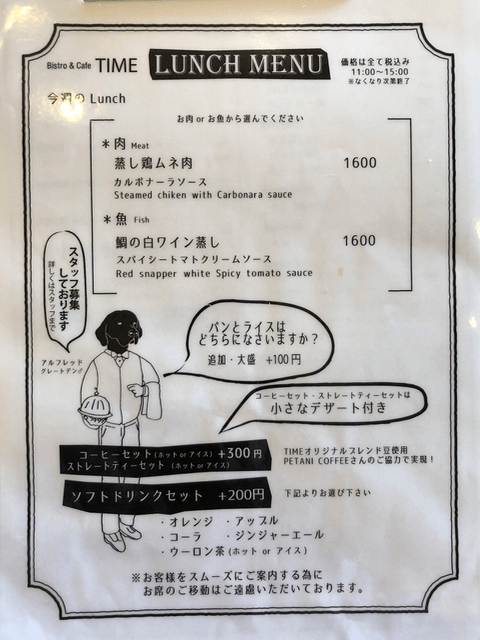 Bistro & Cafe TIME LUNCH MENU
価格は全て税込み
11:00～15:00
※なくなり次第終了
今週の Lunch
お肉 or お魚から選んでください
＊肉 Meat
蒸し鶏ムネ肉 1600
カルボナーラソース
Steamed chiken with Carbonara sauce
＊魚 Fish
鯛の白ワイン蒸し 1600
スパイシートマトクリームソース
Red snapper white Spicy tomato sauce
スタッフ募集
しております
詳しくはスタッフまで
アルフレッド
グレートデン♂
パンとライスは
どちらになさいますか？
追加・大盛 +100円
コーヒーセット・ストレートティーセットは
小さなデザート付き
コーヒーセット (ホット or アイス) +300円
ストレートティーセット (ホット or アイス)
TIMEオリジナルブレンド豆使用
PETANI COFFEEさんのご協力で実現！
ソフトドリンクセット +200円
下記よりお選び下さい
・オレンジ ・アップル
・コーラ ・ジンジャーエール
・ウーロン茶 (ホット or アイス)
※お客様をスムーズにご案内する為に
お席のご移動はご遠慮いただいております。